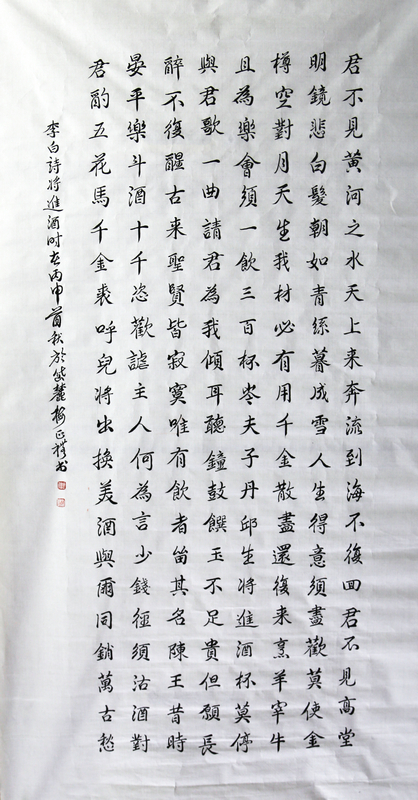 君不見黃河之水天上来奔流到海不復回君不見高堂
明鏡悲白髮朝如青絲暮成雪人生得意須盡歡莫使金
樽空對月天生我材必有用千金散盡還復来烹羊宰牛
且為樂會須一飲三百杯岑夫子丹邱生將進酒杯莫停
與君歌一曲請君為我傾耳聽鐘鼓饌玉不足貴但願長
醉不復醒古来聖賢皆寂寞唯有飲者留其名陳王昔時
晏平樂斗酒十千恣歡謔主人何為言少錢徑須沽酒對
君酌五花馬千金裘呼兒將出換美酒與爾同銷萬古愁
李白詩將進酒时在丙申首秋於麓正书